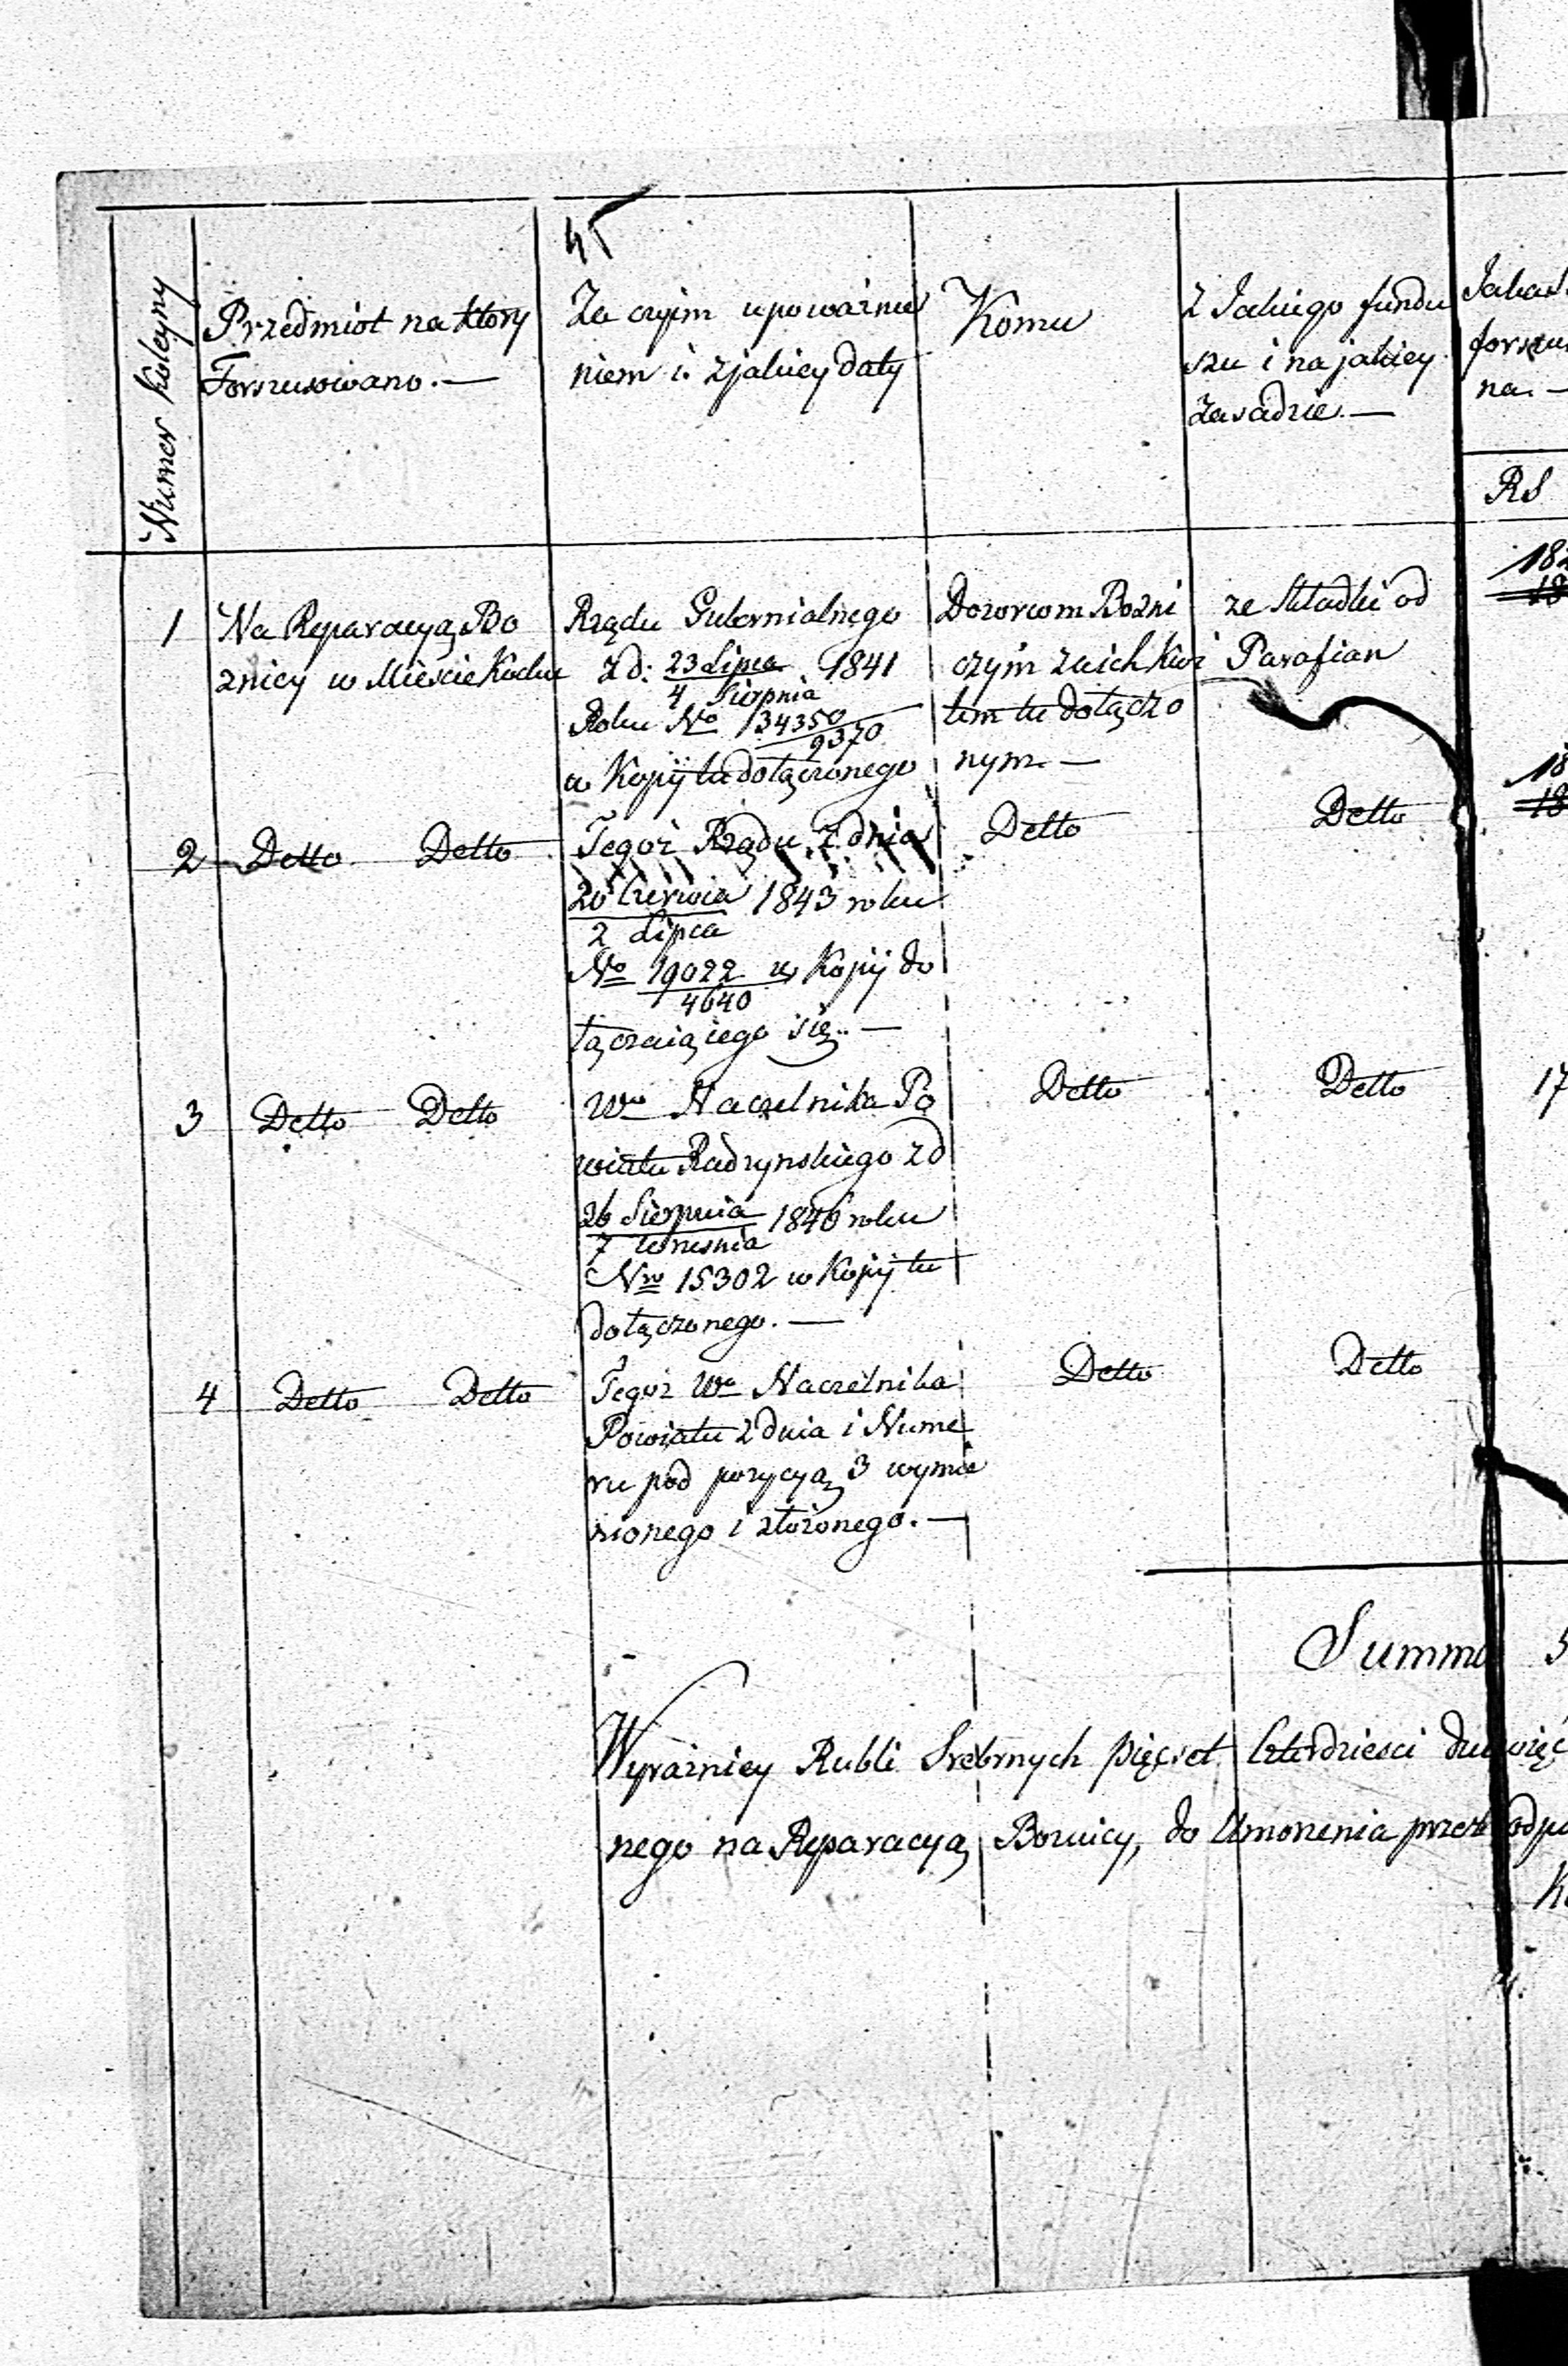 45
Numer Koleyny
Przedmiot na ktory
Forszusowano. —
Za czyim upoważnie
niem i zjakiey daty
Komu
Z Jakiego fundu
szu i na jakiey
zasadzie. —
forszu
na. —
RS
1
Na Reparacyą Bo
znicy w Mieście Kocku
Rządu Gubernialnego
z d: 23 Lipca 1841
4 Sierpnia
Roku No 34350
9370
w Kopij tu dołączonego
Dozorcom Bożni
czym za ich kwi
tem tu dołączo
nym. —
ze składki od
Parafian
2
Detto Detto
Tegoż Rządu z dnia
20 Czerwca 1843 roku
2 Lipca
No 19022 w Kopij do
4640
łączaiącego się. —
Detto
Detto
3
Detto Detto
Wo Naczelnika Po
wiatu Radzynskiego z d
26 Sierpnia 1846 roku
7 Wrzesnia
Nro 15302 w Kopij tu
dołączonego. —
Detto
Detto
17
4
Detto Detto
Tegoż Wo Naczelnika
Powiatu z dnia i Nume
ru pod pozycyą 3 wymie
nionego i złożonego. —
Detto
Detto
Summa 5
Wyraźniey Rubli Srebrnych pięcset Czterdziesci dziewięć
nego na Reparacyą Boznicy, do Umorzenia przez